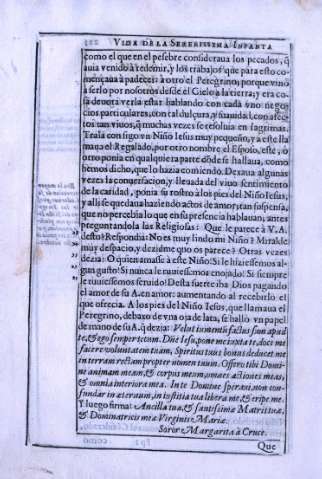 VIDA DE LA SERENISSIMA INFANTA
como el que en el pesebre consideraua los pecados, q̃
auia venido à redemir, y los trabajos que para esto co-
mençaua à padecer: à otro el Peregrino, porque vino
à serlo por nosotros desde el Cielo a la tierra; y era co-
sa deuota verla estar hablando con cada vno nego-
cios particulares, con tal dulçura, y suauidad, con afec-
tos tan viuos, q̃ muchas vezes se resoluia en lagrimas.
Traìa consigo vn Niño Iesus muy pequeño, y a este lla
maua el Regalado, por otro nombre el Esposo, este, ò
otro ponia en qualquiera parte dõde se hallaua, como
hemos dicho, que lo hazia comiendo. Dexaua algunas
vezes la conuersacion, y lleuada del viuo sentimiento
de la caridad, ponia su rostro a los pies del Niño Iesus,
y alli se quedaua haziendo actos de amor, tan suspensa,
que no percebia lo que en su presencia hablauan, antes
preguntandola las Religiosas: Que le parece à V.A.
desto? Respondia: No es muy lindo mi Niño? Miralde
muy despacio, y dezidme que os parece? Otras vezes
dezia: O quien amasse à este Niño! Si le hiziessemos al-
gun gusto! Si nunca le tuuiessemos enojado! Si siempre
le tuuiessemos seruido! Desta suerte iba Dios pagando
el amor de su A. en amor: aumentando al recebirlo el
que ofrecia. A los pies del Niño Iesus, que llamaua el
Peregrino, debaxo de vna oja de lata, se hallò vn papel
de mano de su A. q̃ dezia: Velut iumentũ factus sum apud
te, & ego semper tecum. Dñe Iesu, pone me iuxta te, doce me
facere voluntatem tuam, Spiritus tuus bonus deducet me
in terram rectam propter nomen tuum. Offero tibi Domi-
ne animam meam, & corpus meum, omnes actiones meas,
& omnia interiora mea. In te Domine speraui, non con-
fundar in æternum, in iustitia tua libera me, & eripe me.
Y luego firma: Ancilla tua, & sanctissimæ Matris tuæ,
& Dominatricis meæ Virginis Mariæ.
Soror Margarita à Cruce.
Que